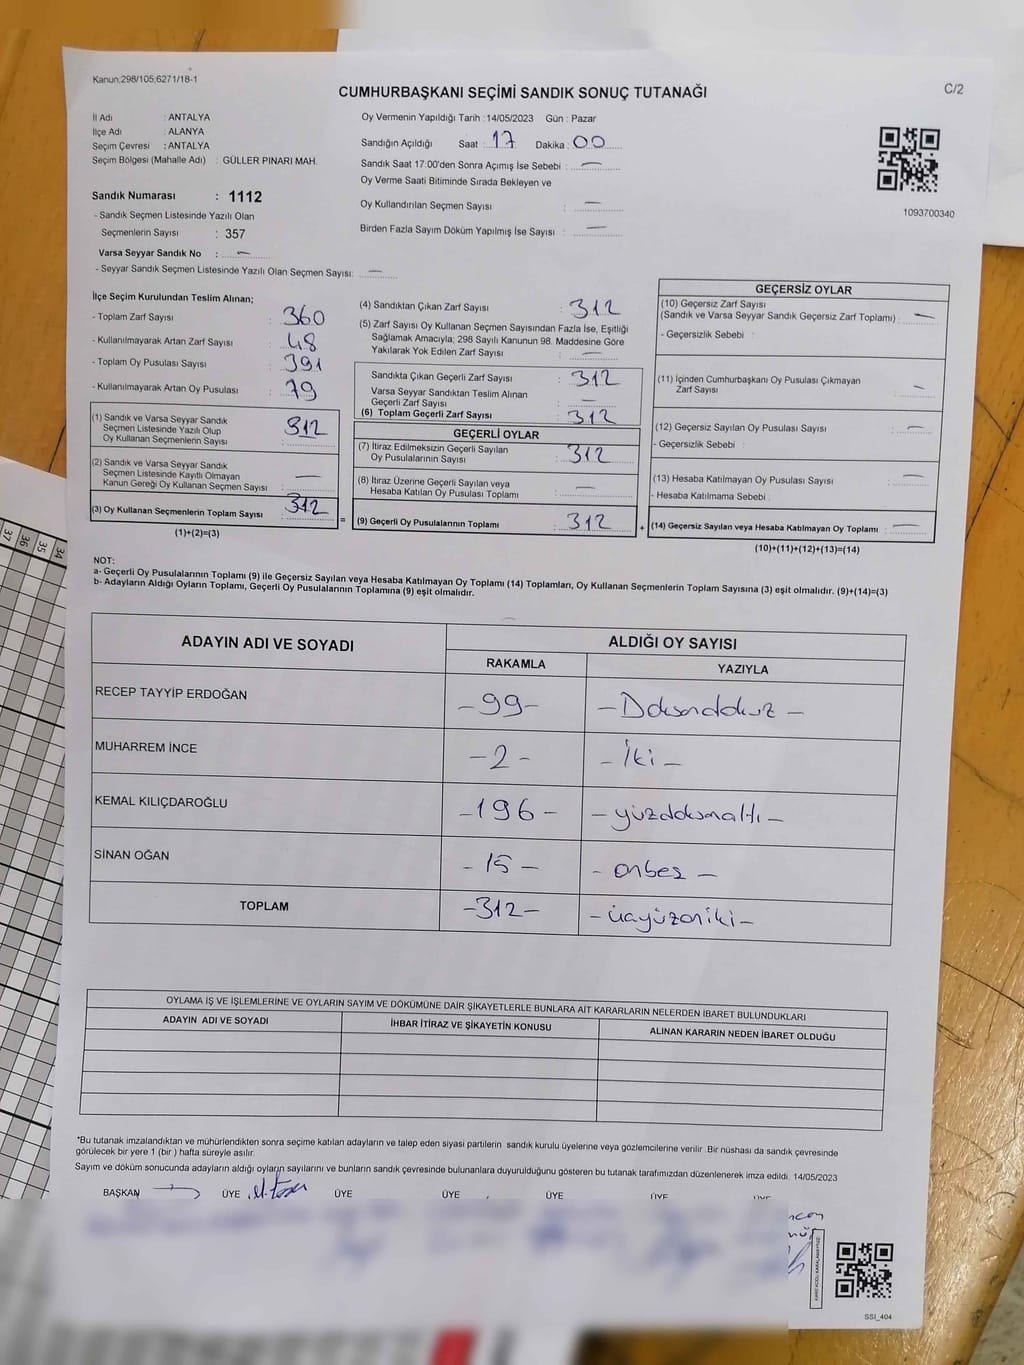 Kanun:298/105,6271/18-1
CUMHURBAŞKANI SEÇİMİ SANDIK SONUÇ TUTANAĞI
C/2
İl Adı : ANTALYA
İlçe Adı : ALANYA
Seçim Çevresi : ANTALYA
Seçim Bölgesi (Mahalle Adı) : GÜLLER PINARI MAH.
Sandık Numarası : 1112
- Sandık Seçmen Listesinde Yazılı Olan
Seçmenlerin Sayısı : 357
Varsa Seyyar Sandık No : —
- Seyyar Sandık Seçmen Listesinde Yazılı Olan Seçmen Sayısı: —
Oy Vermenin Yapıldığı Tarih : 14/05/2023 Gün : Pazar
Sandığın Açıldığı Saat : 17 Dakika : 00
Sandık Saat 17:00'den Sonra Açımış İse Sebebi : —
Oy Verme Saati Bitiminde Sırada Bekleyen ve
Oy Kullandırılan Seçmen Sayısı : —
Birden Fazla Sayım Döküm Yapılmış İse Sayısı : —
1093700340
İlçe Seçim Kurulundan Teslim Alınan;
- Toplam Zarf Sayısı : 360
- Kullanılmayarak Artan Zarf Sayısı : 48
- Toplam Oy Pusulası Sayısı : 391
- Kullanılmayarak Artan Oy Pusulası : 79
(1) Sandık ve Varsa Seyyar Sandık
Seçmen Listesinde Yazılı Olup
Oy Kullanan Seçmenlerin Sayısı : 312
(2) Sandık ve Varsa Seyyar Sandık
Seçmen Listesinde Kayıtlı Olmayan
Kanun Gereği Oy Kullanan Seçmen Sayısı : —
(3) Oy Kullanan Seçmenlerin Toplam Sayısı : 312
(1)+(2)=(3)
(4) Sandıktan Çıkan Zarf Sayısı : 312
(5) Zarf Sayısı Oy Kullanan Seçmen Sayısından Fazla İse, Eşitliği
Sağlamak Amacıyla; 298 Sayılı Kanunun 98. Maddesine Göre
Yakılarak Yok Edilen Zarf Sayısı : —
Sandıkta Çıkan Geçerli Zarf Sayısı : 312
Varsa Seyyar Sandıktan Teslim Alınan
Geçerli Zarf Sayısı : —
(6) Toplam Geçerli Zarf Sayısı : 312
GEÇERLİ OYLAR
(7) İtiraz Edilmeksizin Geçerli Sayılan
Oy Pusulalarının Sayısı : 312
(8) İtiraz Üzerine Geçerli Sayılan veya
Hesaba Katılan Oy Pusulası Toplamı : —
= (9) Geçerli Oy Pusulalarının Toplamı : 312 +
GEÇERSİZ OYLAR
(10) Geçersiz Zarf Sayısı
(Sandık ve Varsa Seyyar Sandık Geçersiz Zarf Toplamı) : —
- Geçersizlik Sebebi :
(11) İçinden Cumhurbaşkanı Oy Pusulası Çıkmayan
Zarf Sayısı : —
(12) Geçersiz Sayılan Oy Pusulası Sayısı : —
- Geçersizlik Sebebi :
(13) Hesaba Katılmayan Oy Pusulası Sayısı : —
- Hesaba Katılmama Sebebi :
(14) Geçersiz Sayılan veya Hesaba Katılmayan Oy Toplamı : —
(10)+(11)+(12)+(13)=(14)
NOT:
a- Geçerli Oy Pusulalarının Toplamı (9) ile Geçersiz Sayılan veya Hesaba Katılmayan Oy Toplamı (14) Toplamları, Oy Kullanan Seçmenlerin Toplam Sayısına (3) eşit olmalıdır. (9)+(14)=(3)
b- Adayların Aldığı Oyların Toplamı, Geçerli Oy Pusulalarının Toplamına (9) eşit olmalıdır.
ADAYIN ADI VE SOYADI
ALDIĞI OY SAYISI
RAKAMLA YAZIYLA
RECEP TAYYİP ERDOĞAN -99- -Doksandokuz-
MUHARREM İNCE -2- -İki-
KEMAL KILIÇDAROĞLU -196- -yüzdoksanaltı-
SİNAN OĞAN -15- -onbeş-
TOPLAM -312- -üçyüzoniki-
OYLAMA İŞ VE İŞLEMLERİNE VE OYLARIN SAYIM VE DÖKÜMÜNE DAİR ŞİKAYETLERLE BUNLARA AİT KARARLARIN NELERDEN İBARET BULUNDUKLARI
ADAYIN ADI VE SOYADI İHBAR İTİRAZ VE ŞİKAYETİN KONUSU ALINAN KARARIN NEDEN İBARET OLDUĞU
*Bu tutanak imzalandıktan ve mühürlendikten sonra seçime katılan adayların ve talep eden siyasi partilerin sandık kurulu üyelerine veya gözlemcilerine verilir. Bir nüshası da sandık çevresinde
görülecek bir yere 1 (bir ) hafta süreyle asılır.
Sayım ve döküm sonucunda adayların aldığı oyların sayılarını ve bunların sandık çevresinde bulunanlara duyurulduğunu gösteren bu tutanak tarafımızdan düzenlenerek imza edildi. 14/05/2023
BAŞKAN ÜYE ÜYE ÜYE ÜYE ÜYE ÜYE
SSI_404
37
36
35
34